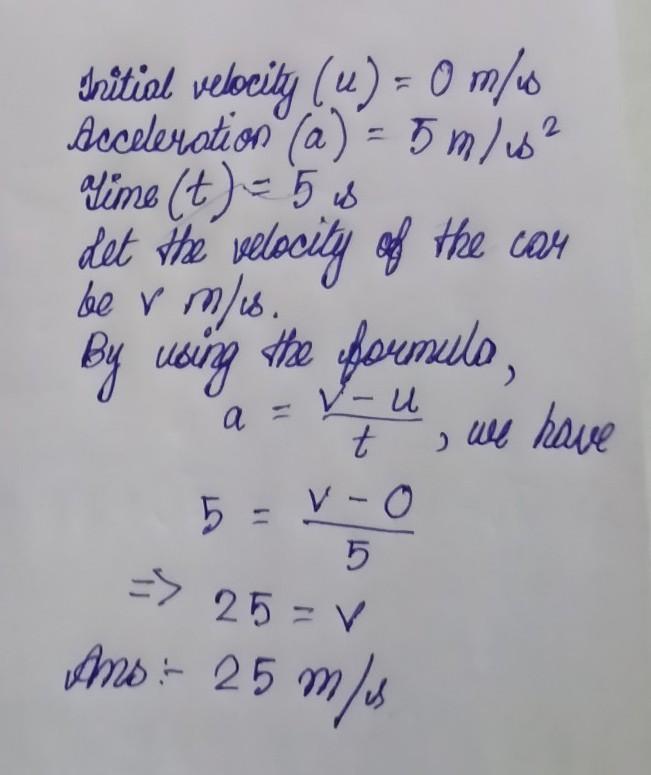 Initial velocity (u) = 0 m/s
Acceleration (a) = 5 m/s²
Time (t) = 5 s
Let the velocity of the car
be v m/s.
By using the formula,
a = v - u / t , we have
5 = v - 0 / 5
=> 25 = v
Ans :- 25 m/s